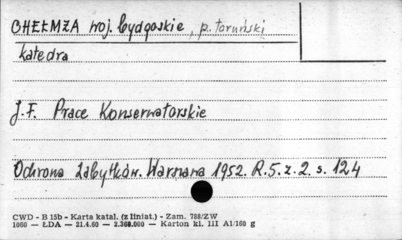 CHEŁMŻA woj. bydgoskie, p. toruński
katedra
J.F. Prace Konserwatorskie
Ochrona Zabytków. Warszawa 1952. R.5. z. 2. s. 124
CWD - B 15b - Karta katal. (z liniat.) - Zam. 788/ZW
1060 — ŁDA — 21.4.60 — 2.360.000 — Karton kl. III A1/160 g